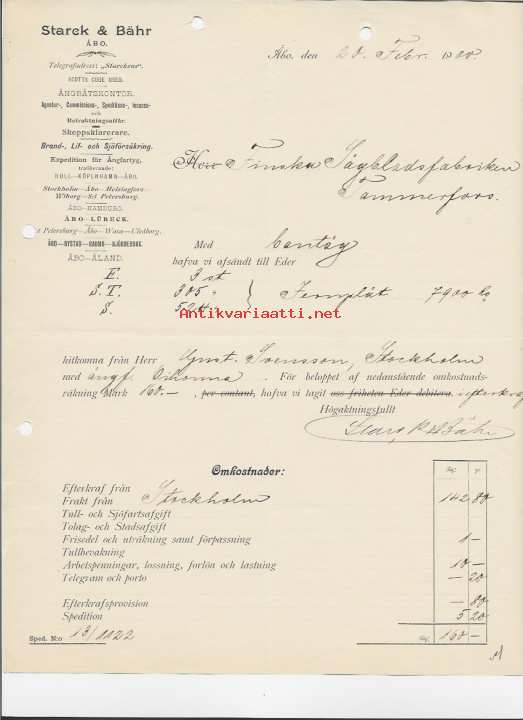 Starck & Bähr
ÅBO.
Telegrafadress: „Starckens“.
SCOTTS CODE USED.
ÅNGBÅTSKONTOR.
Agentur-, Commissions-, Speditions-, Incasso-
och
Befraktningsaffär.
Skeppsklarerare.
Brand-, Lif- och Sjöförsäkring.
Expedition för Ångfartyg,
trafikerande:
HULL-KÖPENHAMN-ÅBO.
Stockholm-Åbo-Helsingfors-
Wiborg-S:t Petersburg.
ÅBO-HAMBURG.
ÅBO-LÜBECK.
t Petersburg-Åbo-Wasa-Uleåborg.
ÅBO-NYSTAD-RAUMO-BJÖRNEBORG.
ÅBO-ÅLAND.
Åbo, den 20. Febr. 1900.
Herr Finska Sågbladsfabriken
Tammerfors.
Med bantåg
hafva vi afsändt till Eder
E. 3 st
S. T. 305 "
S. 524 } Jernplåt 7900 ko
Antikvariaatti.net
hitkomna från Herr Gust. Svensson, Stockholm
med ångf. Oihonna. För beloppet af nedanstående omkostnads-
räkning Mark 160.-, per contant, hafva vi tagit oss friheten Eder debitera, i efterkraf
Högaktningsfullt
Starck & Bähr
Omkostnader:
Efterkraf från
Frakt från Stockholm 142 80
Tull- och Sjöfartsafgift
Tolag- och Stadsafgift
Frisedel och uträkning samt förpassning 1 -
Tullbevakning
Arbetspenningar, lossning, forlön och lastning 10 -
Telegram och porto - 20
Efterkrafsprovision - 80
Spedition 5 20
Sped. N:o 13/1022 160 -